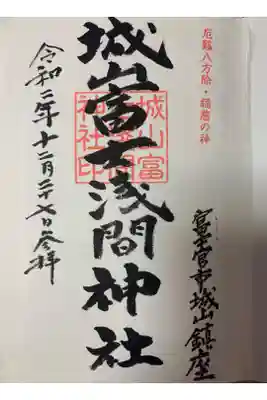 厄難八方除・の神
富士宮市城山鎮座
城山富士浅間神社
城山富
士浅間
神社印
令和二年十二月二十七日参拝